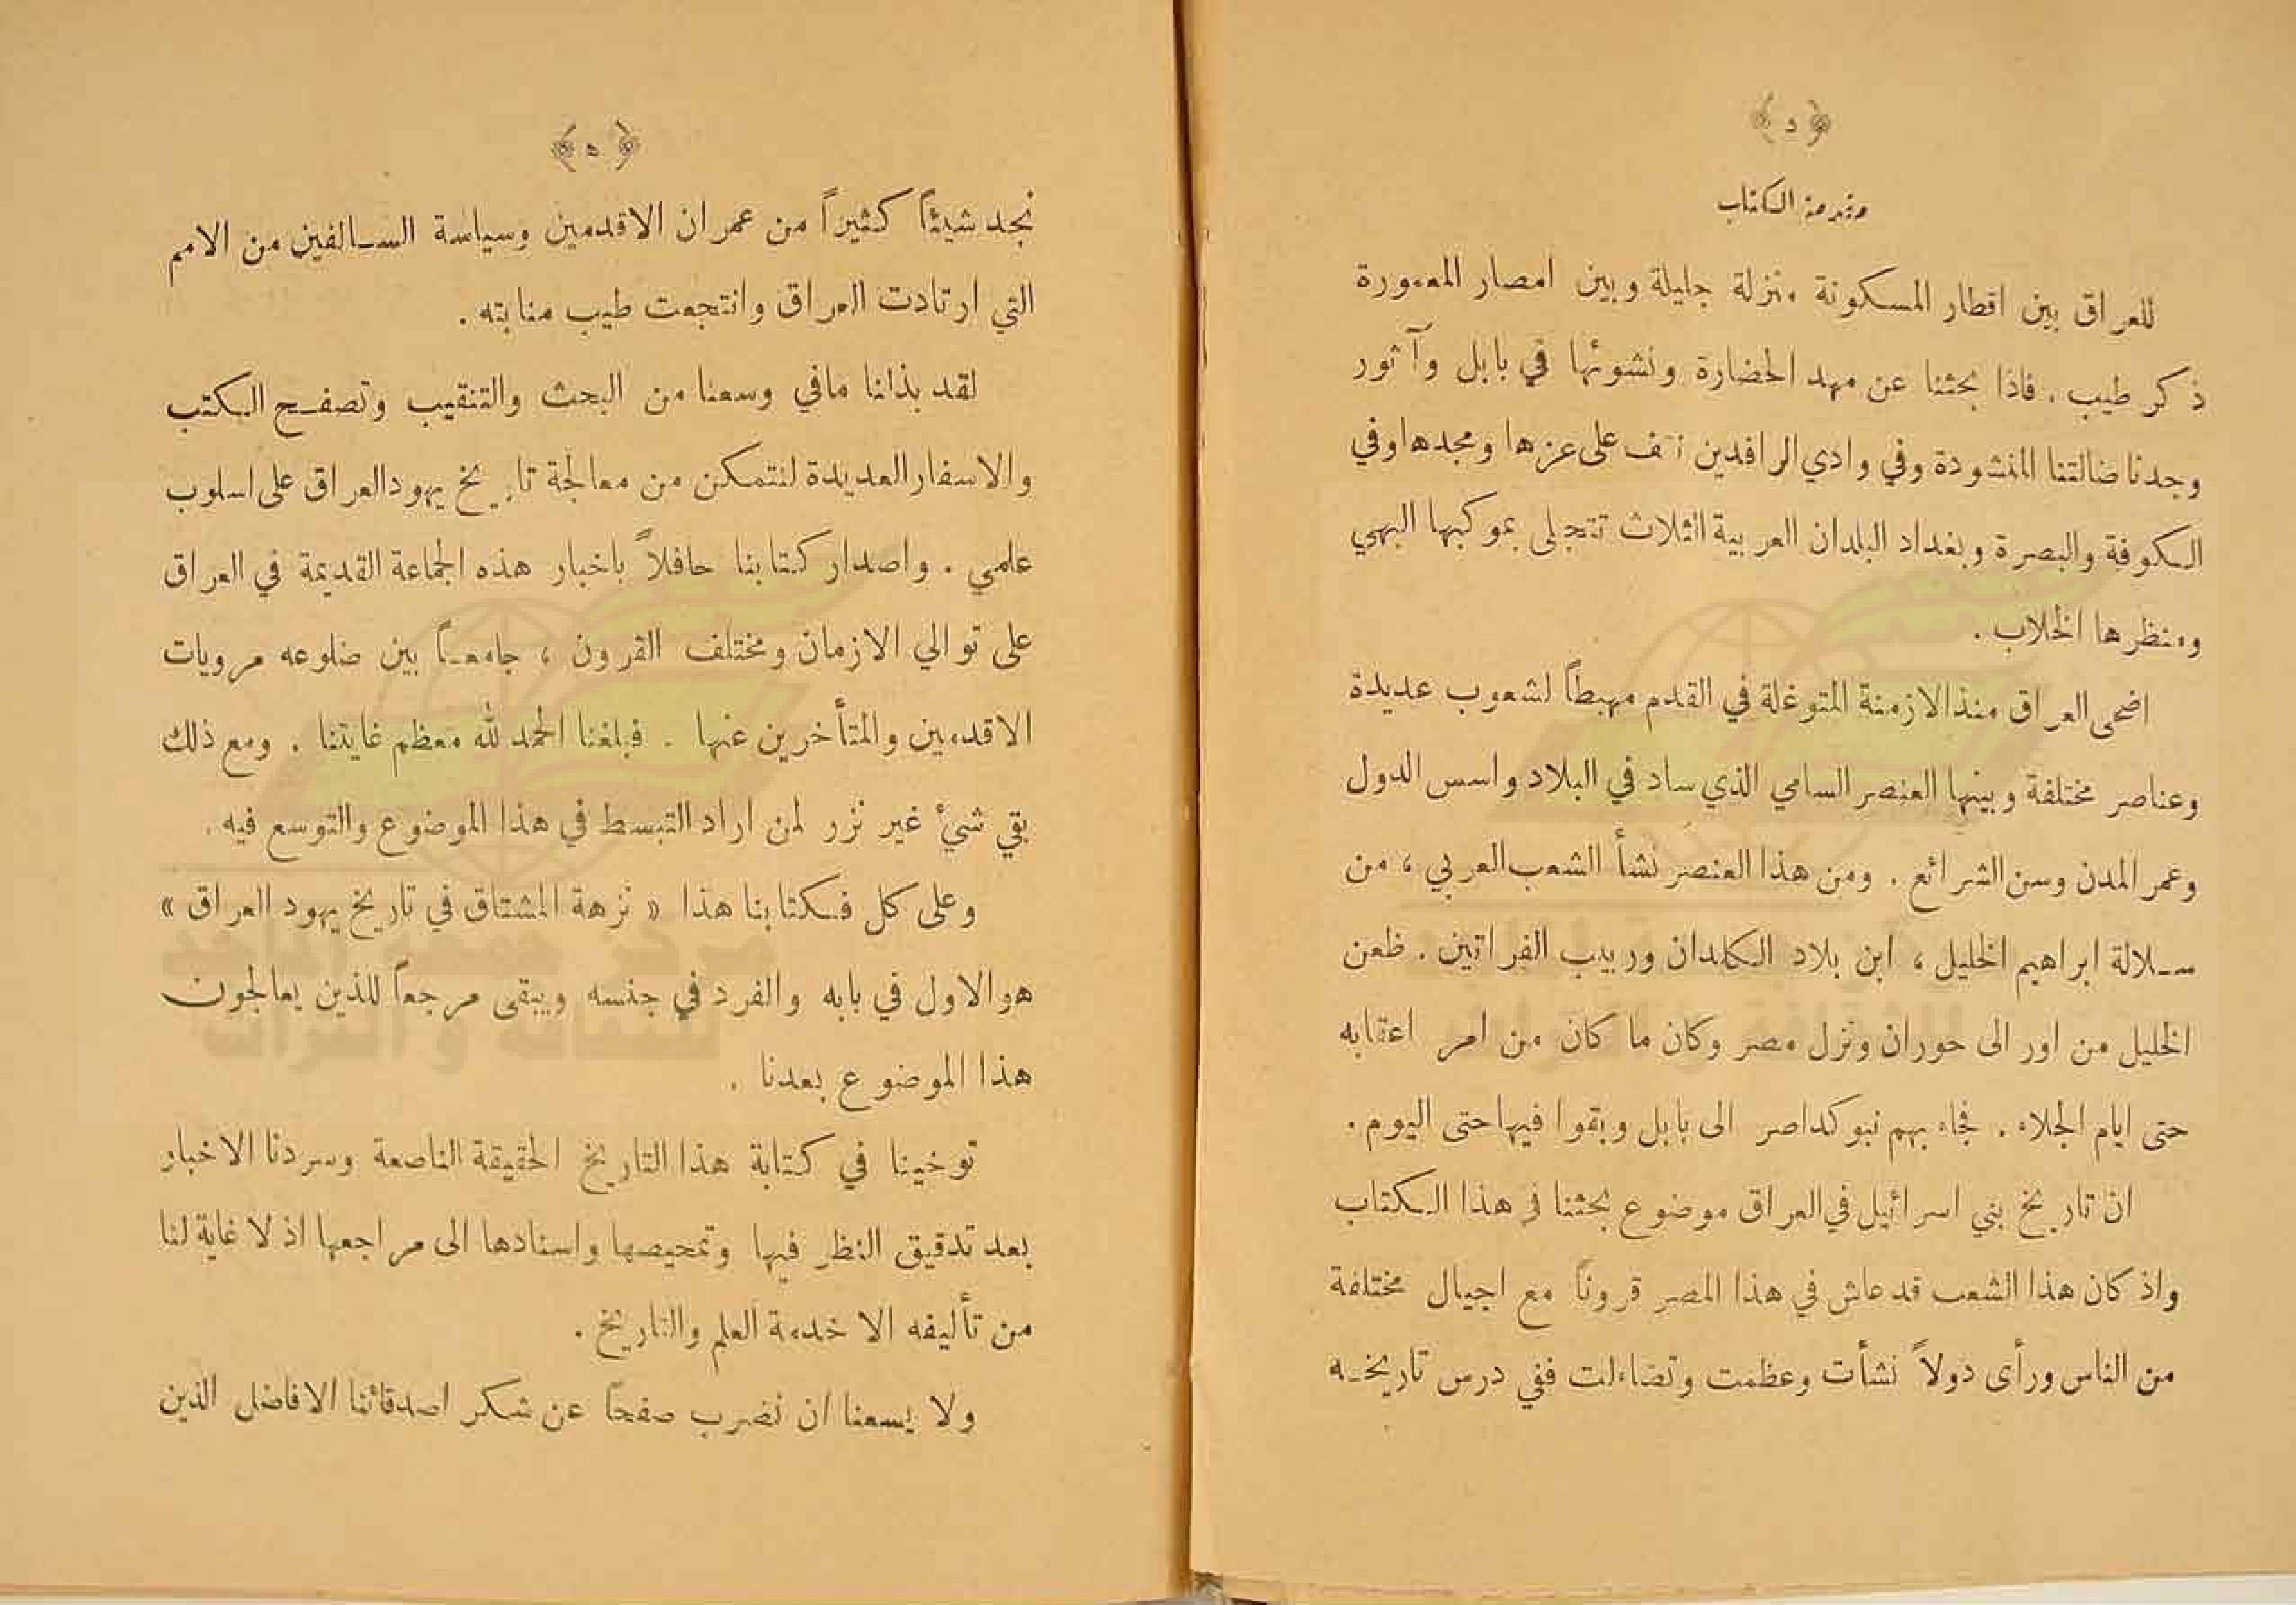 ﴿ د ﴾
مقدمة الكتاب
للعراق بين اقطار المسكونة منزلة جليلة وبين امصار المعمورة
ذكر طيب . فاذا بحثنا عن مهد الحضارة ونشوئها في بابل وآثور
وجدنا ضالتنا المنشودة وفي وادي الرافدين نقف على عزها ومجدها وفي
الكوفة والبصرة وبغداد البلدان العربية الثلاث تتجلى بموكبها البهي
ومنظرها الخلاب .
اضحى العراق منذ الازمنة المتوغلة في القدم مهبطاً لشعوب عديدة
وعناصر مختلفة وبينها العنصر السامي الذي ساد في البلاد واسس الدول
وعمر المدن وسن الشرائع . ومن هذا العنصر نشأ الشعب العربي ، من
سلالة ابراهيم الخليل ، ابن بلاد الكلدان وربيب الفراتين . ظعن
الخليل من اور الى حوران ونزل مصر وكان ما كان من امر اعقابه
حتى ايام الجلاء . فجاء بهم نبوكداصر الى بابل وبقوا فيها حتى اليوم .
ان تاريخ بني اسرائيل في العراق موضوع بحثنا في هذا الكتاب
واذ كان هذا الشعب قد عاش في هذا المصر قروناً مع اجيال مختلفة
من الناس ورأى دولاً نشأت وعظمت وتضاءلت ففي درس تاريخه
﴿ ه ﴾
نجد شيئاً كثيراً من عمران الاقدمين وسياسة السالفين من الامم
التي ارتادت العراق وانتجعت طيب منابته .
لقد بذلنا مافي وسعنا من البحث والتنقيب وتصفح الكتب
والاسفار العديدة لنتمكن من معالجة تاريخ يهود العراق على اسلوب
علمي . واصدار كتابنا حافلاً باخبار هذه الجماعة القديمة في العراق
على توالي الازمان ومختلف القرون ، جامعاً بين ضلوعه مرويات
الاقدمين والمتأخرين عنها . فبلغنا الحمد لله معظم غايتنا . ومع ذلك
بقي شيء غير نزر لمن اراد التبسط في هذا الموضوع والتوسع فيه .
وعلى كل فكتابنا هذا « نزهة المشتاق في تاريخ يهود العراق »
هو الاول في بابه والفرد في جنسه ويبقى مرجعاً للذين يعالجون
هذا الموضوع بعدنا .
توخينا في كتابة هذا التاريخ الحقيقة الناصعة وسردنا الاخبار
بعد تدقيق النظر فيها وتمحيصها واسنادها الى مراجعها اذ لا غاية لنا
من تأليفه الا خدمة العلم والتاريخ .
ولا يسعنا ان نضرب صفحاً عن شكر اصدقائنا الافاضل الذين
مركز جمعة الماجد
للثقافة و التراث